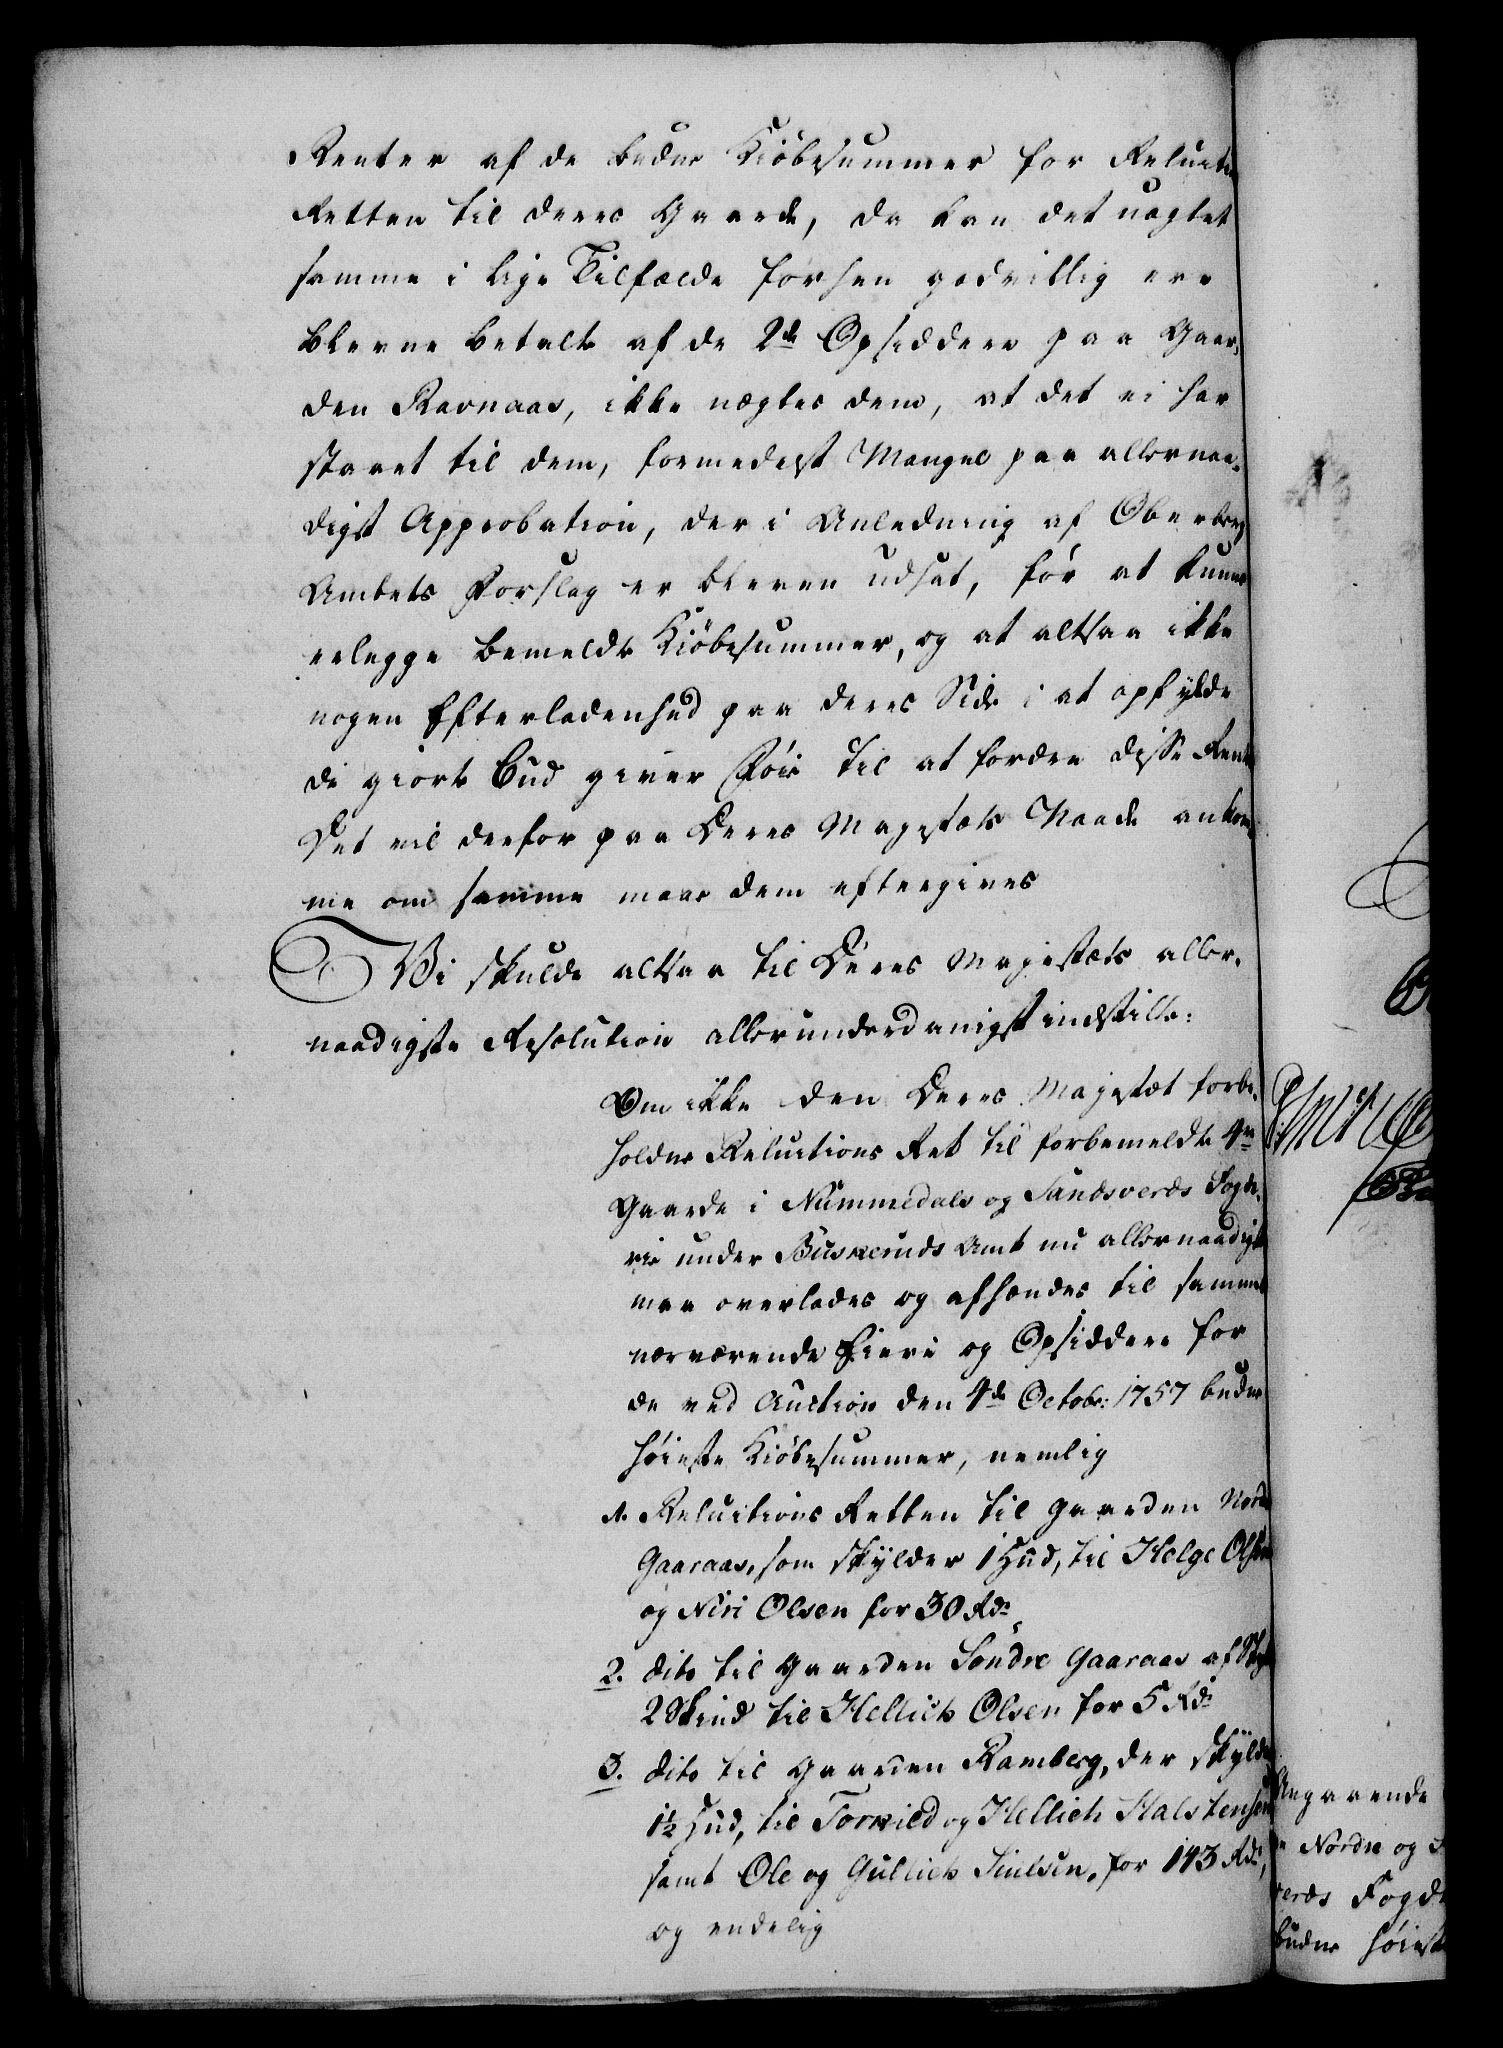 Renter af de budne Kiöbesummer for Reluitions
Retten til deres Gaarde, da kan det uagtet
samme i lige Tilfælde forhen godvillig ere
blevne betalte af de 2de Opsiddere paa Gaar-
den Ravnaas, ikke nægtes dem, at det ei har
staaet til dem, formedelst Mangel paa allernaa-
digst Approbation, der i Anledning af Oberberg
Ambets Forslag er bleven udsat, før at kunne
erlegge bemeldte Kiöbesummer, og at altsaa ikke
nogen Efterladenhed paa deres Side i at opfylde
de giorte Bud giver Föie til at fordre disse Renter
Det vil derfor paa Deres Majestæts Naade ankom-
me om samme maae dem eftergives
Vi skulde altsaa til Deres Majestæts aller-
naadigste Resolution allerunderdanigst indstille:
Om ikke den Deres Majestæt forbe-
holdne Reluitions Ret til forbemeldte 4re
Gaarde i Nummedals og Sandsverds Fogde-
rie under Buskeruds Amt nu allernaadigst
maa overlades og afhændes til sammes
nærværende Eiere og Opsiddere for
de ved Auction den 4de Octobr: 1757 budne
höieste Kiöbesummer, nemlig
1. Reluitions Retten til Gaarden Nordre
Gaaraas, som skylder 1 Hud, til Helge Olsen
og Niri Olsen for 30 Rdr
2. dito til Gaarden Söndre Gaaraas af Skyld
2 Skind til Hellich Olsen for 5 Rdr
3. dito til Gaarden Ramberg, der skylder
1½ Hud, til Torkild og Hellich Halstensen
samt Ole og Gullich , for 143 Rdr,
og endelig
Angaaende
Nordre og
verds Fogde
budne höieste